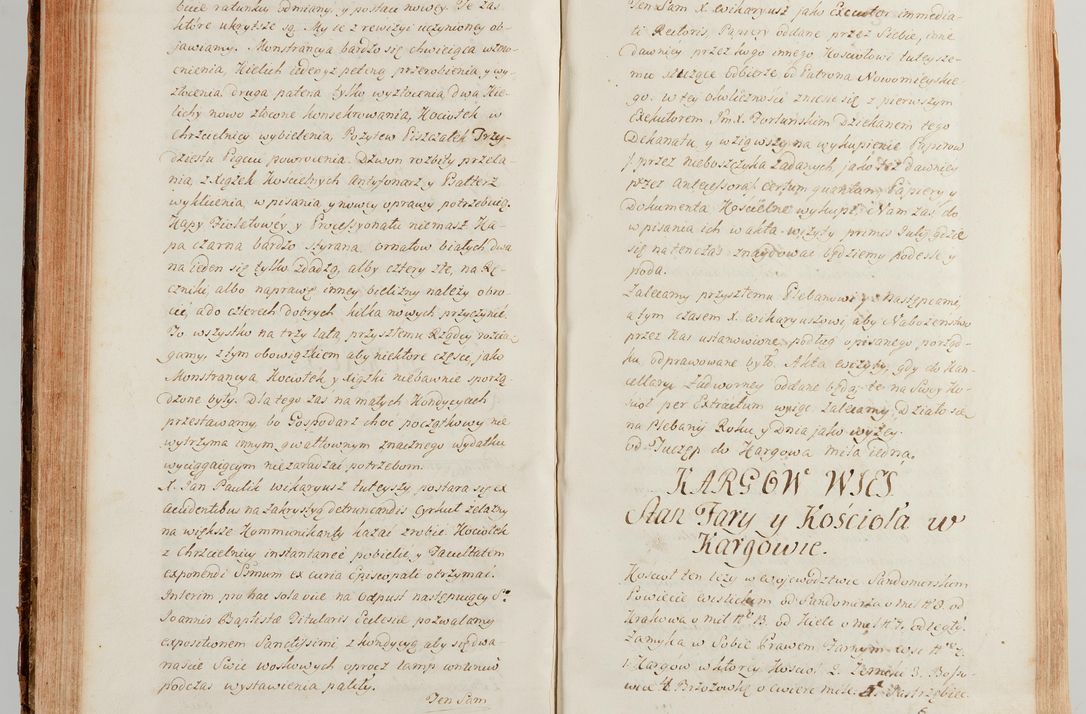 bucie ratunku odmiany, y postaci nowey. Te zas
które ukrytsze są. My ie z rewizyi uczynioney ob-
jawiamy. Monstrancya bardzo się chwieiąca wzmo-
cnienia, Kielich ieden y z pateną przerobienia y wy-
złocenia, druga patena tylko wyzłocenia, dwa Kie-
lichy nowo złocone konsekrowania, Kociołek w
Chrzcielnicy wybielenia, Pozytew Piszczałek Trzy-
dziestu Pięciu powrocenia. Dzwon rozbity przela-
nia, z Xiążek Kościelnych Antyfonarz y Psałterz
wyklienia, wpisania y nowey oprawy potrzebuią.
Kapy Fioletowéy y Processyonału niemasz Ka-
pa czarna bardzo styrana, ornatów białych dwa
na ieden się tylko zdadzą, alby cztery złe, na Rę-
czniki, albo naprawę inney bielizny należy obro-
cić, a do czterech dobrych kilka nowych przyczynić.
To wszystko na trzy lata przyszłemu Rządcy rozcią-
gamy, z tym obowiązkiem aby niektóre części, jako
Monstrancya Kociołek y xiążki niebawnie sporzą-
dzone były. Dla tego zas na małych Kondycyach
przestawamy, bo Gospodarz choc początkowy nie
wytrzyma innym gwałtownym znacznego wydatku
wyciągaiącym niezaradzać potrzebom.
X. Jan Paulik wikaryusz tuteyszy postara się ex
Accidentibus na zakrystyą detruncandis Cyrkuł żelazny
na większe Kommunikanty kazać zrobić Kociołek
z Chrzcielnicy instantanee pobielić, y Facultatem
exponendi Ssmum ex curia Episcopali otrzymać.
Interim pro hac sola vice na Odpust następuiący S.
Joannis Baptistæ Titularis Ecclesiæ pozwalamy
expositionem Sanctissimi z kondycyą aby się dwa-
naście Swiec woskowych oprocz lamp wniemiu
podczas wystawienia paliły.
Ten Sam
Ten Sam X. wikaryusz jako Executor immedia-
ti Rectoris, Papiery oddane przez Siebie, inne
dawniey przez kogo innego Kościołowi tuteysze-
mu służące odbierze od Patrona Nowomieyskie-
go. w tey okoliczności zniesie się z pierwszym
Exekutorem Jmx. Fortuńskim Dziekanem tego
Dekanatu, y wziąwszy na wykupienie Papirow
przez nieboszczyka żadanych, jako też dawniey
przez Antecessora certum quantum Papiery y
Dokumenta Kościelne wykupi, Nam zas do
wpisania ich w akta wizyty primis Julij gdzie
się natenczas znaydować będziemy podeśle y
poda.
Zalecamy przyszłemu Plebanowi y następcami,
a tym czasem X. wikaryuszowi aby Nabożeństwo
przez Nas ustanowione podług opisanego porząd-
ku odprawowane było. Akta wizyty gdy do Kan-
cellaryi Zadworney oddane będą, te na Swóy Ko-
sciół per Extractum wyiąc zalecamy. Działo się
na Plebanij Roku y Dnia jako wyżey.
Od Tuczęp do Kargowa mila iedna.
KARGOW WIEŚ
Stan Fary y Kościoła w
Kargowie.
Kościoł ten leży w Wojewodztwie Sandomerskim
Powiecie Wislickim od Sandomirza o mil N. 8. od
Krakowa o mil N. 13. od Kielc o mil N. 7. odległy.
Zamyka w Sobie Prawem Farnym wsi N. 7.
1. Kargow w którey Kosciół 2. Zerniki 3. Bosso-
wice 4. Brzozowkę o cwierć mile. 5. Jastrzębiec